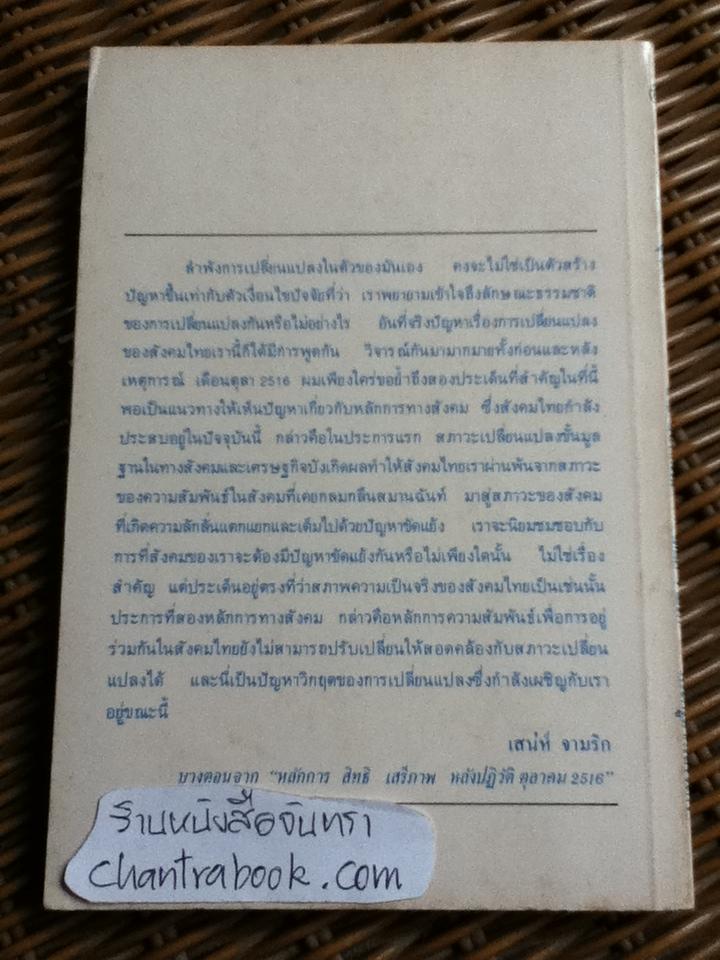 ลำพังการเปลี่ยนแปลงในตัวของมันเอง คงจะไม่ใช่เป็นตัวสร้าง
ปัญหาขึ้นเท่ากับตัวเงื่อนไขปัจจัยที่ว่า เราพยายามเข้าใจถึงลักษณะธรรมชาติ
ของการเปลี่ยนแปลงกันหรือไม่อย่างไร อันที่จริงปัญหาเรื่องการเปลี่ยนแปลง
ของสังคมไทยเรานี้ก็ได้มีการพูดกัน วิจารณ์กันมามากมายทั้งก่อนและหลัง
เหตุการณ์ เดือนตุลา 2516 ผมเพียงใคร่ขอย้ำถึงสองประเด็นที่สำคัญในที่นี้
พอเป็นแนวทางให้เห็นปัญหาเกี่ยวกับหลักการทางสังคม ซึ่งสังคมไทยกำลัง
ประสบอยู่ในปัจจุบันนี้ กล่าวคือในประการแรก สภาวะเปลี่ยนแปลงขั้นมูล
ฐานในทางสังคมและเศรษฐกิจบังเกิดผลทำให้สังคมไทยเราผ่านพ้นจากสภาวะ
ของความสัมพันธ์ในสังคมที่เคยกลมกลืนสมานฉันท์ มาสู่สภาวะของสังคม
ที่เกิดความลักลั่นแตกแยกและเต็มไปด้วยปัญหาขัดแย้ง เราจะนิยมชมชอบกับ
การที่สังคมของเราจะต้องมีปัญหาขัดแย้งกันหรือไม่เพียงใดนั้น ไม่ใช่เรื่อง
สำคัญ แต่ประเด็นอยู่ตรงที่ว่าสภาพความเป็นจริงของสังคมไทยเป็นเช่นนั้น
ประการที่สองหลักการทางสังคม กล่าวคือหลักการความสัมพันธ์เพื่อการอยู่
ร่วมกันในสังคมไทยยังไม่สามารถปรับเปลี่ยนให้สอดคล้องกับสภาวะเปลี่ยน
แปลงได้ และนี่เป็นปัญหาวิกฤตของการเปลี่ยนแปลงซึ่งกำลังเผชิญกับเรา
อยู่ขณะนี้
เสน่ห์ จามริก
บางตอนจาก "หลักการ สิทธิ เสรีภาพ หลังปฏิวัติ ตุลาคม 2516"
ร้านหนังสือจันทรา
chantrabook.com